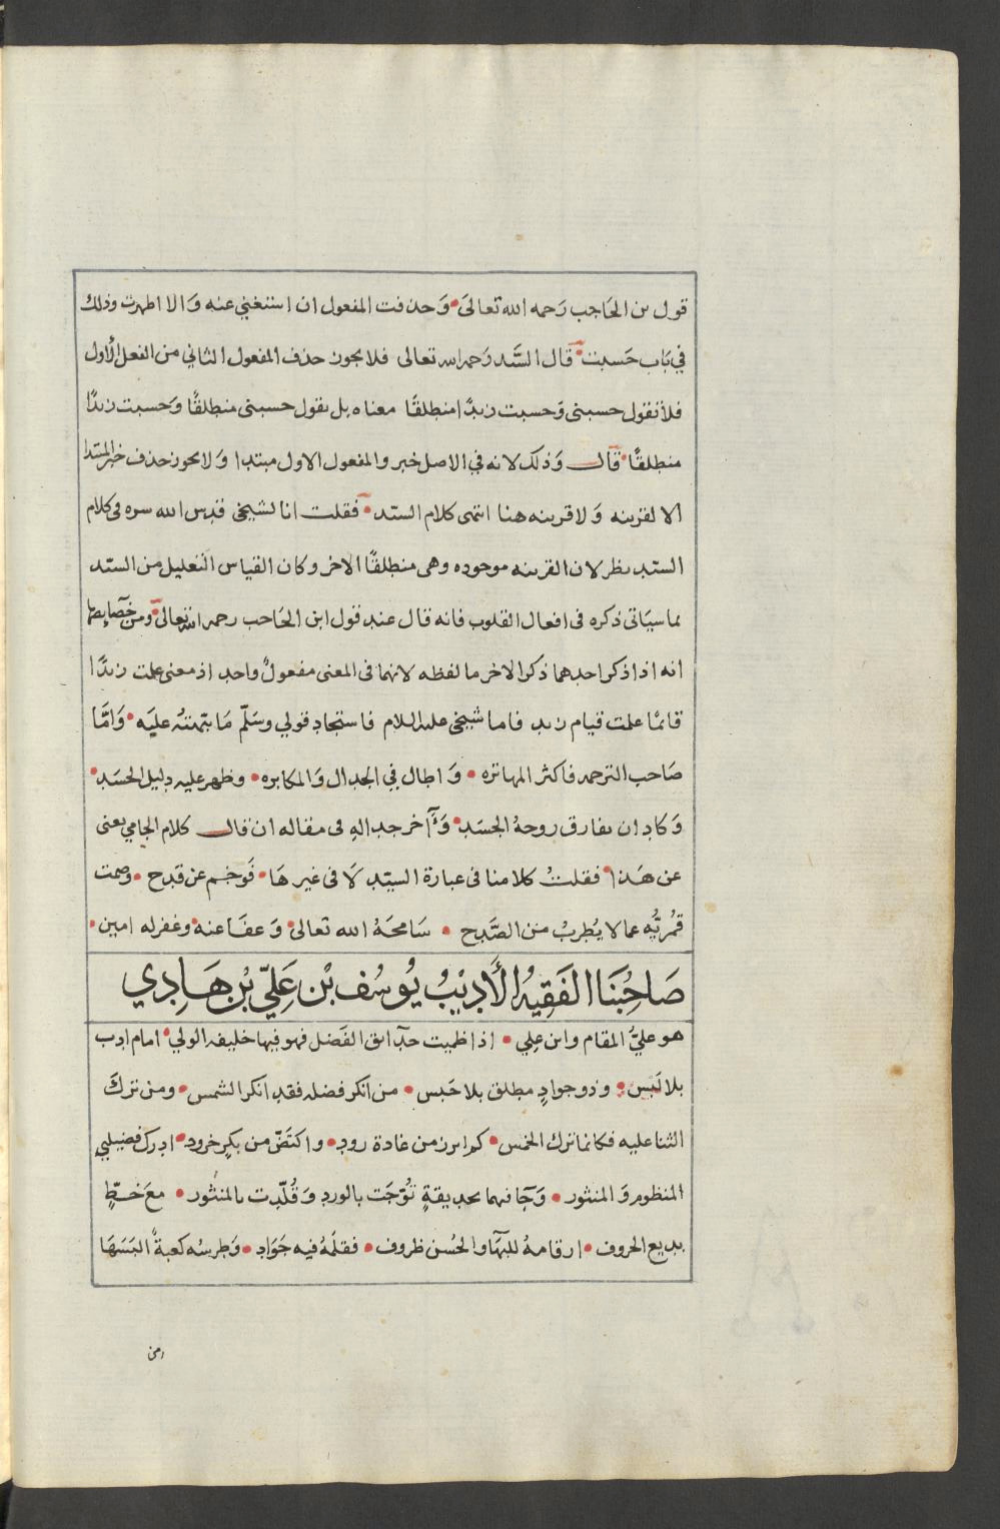 قول بن الحَاجب رَحمه الله تعالىَ وَحذفت المفعول ان استغني عنه وَالا اظهرت وذلك
في بَاب حَسبت قال السَّيد رَحمه الله تعالى فلا يجوز حذف المفعول الثاني من الفعل الأول
فلا نقول حسبنى وَحسبت زيدًا منطلقًا معناه بل نقول حسبنى منطلقًا وَحسبت زيدًا
منطلقًا قال وَذلك لانه في الاصل خبر والمفعول الاول مبتدا وَلا يجوز حذف خبر المبتدا
الا لقرينه وَلا قرينه هنا انتهى كلام السيد فقلت انا لشيخى قدس الله سره فى كلام
السيد نظر لان القرينه موجوده وهى منطلقًا الاخر وكان القياس التعليل من السيد
بما سيَاتى ذكره فى افعال القلوب فانه قال عند قول ابن الحَاجب رحمه الله تعالى ومن خصَايصها
انه اذا ذكر احدهما ذكر الاخر ما لفظه لانهما فى المعنى مفعولٌ واحد اذ معنى علمت زيدًا
قائمًا علمت قيام زيد فاما شيخى عليه السلام فاستجاد قولي وسَلّم مَا نبهتهُ عليَه وَامَّا
صَاحب الترجمه فاكثر المهاتره وَاطال في الجدال وَالمكابره وظهر عليه دليل الحسَد
وَكاد ان يفارق روحهُ الجسَد وَآخر جدالهِ فى مقاله ان قال كلام الجامي يعنى
عن هَذا فقلتُ كلامنا فى عبارة السيّد لَا فى غيرهَا فَوخم عن قدح وصمت
قمُريُّه عما لا يُطربُ من الصَّدح سَامحَهُ الله تعالىَ وَعفَا عنه وغفر له امين
صَاحِبُنَا الفَقِيهُ الأَدِيْبُ يُوسُف بْن عَلِيّ بْن هَادِي
هو عليُّ المقام وابن علي اذا ظميت حدَآئق الفَضل فهو فيها خليفه الولي امام ادب
بلا لَبس وذو جوادٍ مطلق بلا حَبس من انكر فضله فقد انكر الشمس ومن تركَ
الثنا عليه فكانما ترك الخمس كم ابرز من غادة رود وافتضّ من بكرٍ خرود ادرك فضيلتي
المنظوم وَالمنثور وَجَآ فيهما بحديقةٍ تُوّجَت بالورد وَقُلّدت بالمنثور معَ خطٍّ
بديع الحروف ارقامهُ للبهَآ والحُسن ظروف فقلمَهُ فيه جَوَاد وَطرسُه كعبةٌ البَسَهَا
من